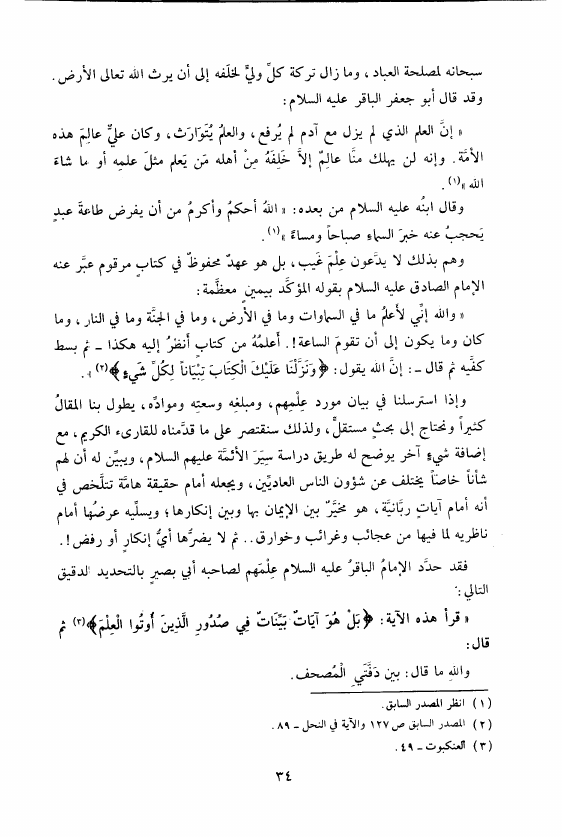 سبحانه لمصلحة العباد، وما زال تركة كلِّ وليٍّ لخلَفه إلى أن يرث الله تعالى الأرض.
وقد قال أبو جعفر الباقر عليه السلام:
« إنَّ العلم الذي لم يزل مع آدم لم يُرفع، والعلمُ يُتَوارَث، وكان عليٌّ عالِمَ هذه
الأمَّة. وإنه لن يهلك منَّا عالِمٌ إلاَّ خَلِفَهُ مِنْ أهله مَن يَعلم مثلَ علمِه أو ما شاءَ
الله »(١).
وقال ابنُه عليه السلام من بعده: « اللهُ أحكمُ وأكرمُ من أن يفرض طاعةَ عبدٍ
يَحجبُ عنه خبرَ السماءِ صباحاً ومساءً »(١).
وهم بذلك لا يدَّعون عِلْمَ غَيب، بل هو عهدٌ محفوظٌ في كتابٍ مرقوم عبَّر عنه
الإمام الصادق عليه السلام بقوله المؤكَّد بيمينٍ معظَّمة:
« والله إنِّي لأعلمُ ما في السماوات وما في الأرض، وما في الجنَّة وما في النار، وما
كان وما يكون إلى أن تقومَ الساعة!. أعلمُهُ من كتابٍ أنظرُ إليه هكذا ـ ثم بسط
كفَّيه ثم قال ـ: إنَّ الله يقول: ﴿وَنَزَّلْنَا عَلَيْكَ الْكِتَابَ تِبْيَاناً لِكُلِّ شَيءٍ﴾(٢) ».
وإذا استرسلنا في بيان مورد عِلْمِهم، ومبلغِه وسعتِه وموادِّه، يطول بنا المقالُ
كثيراً ونحتاج إلى بحثٍ مستقلٍّ، ولذلك سنقتصر على ما قدَّمناه للقارىء الكريم، مع
إضافة شيءٍ آخر يوضح له طريق دراسة سِيَرَ الأئمَّة عليهم السلام، ويبيِّن له أن لهم
شأناً خاصّاً يختلف عن شؤون الناس العاديّين، ويجعله أمام حقيقة هامَّة تتلَّخص في
أنه أمام آياتٍ ربَّانيَّة، هو مخيَّرٌ بين الإيمان بها وبين إنكارها؛ ويسلِّيه عرضُها أمام
ناظريه لما فيها من عجائب وغرائب وخوارق.. ثم لا يضرُّها أيُّ إنكارٍ أو رفض!.
فقد حدَّد الإمامُ الباقرُ عليه السلام عِلْمَهم لصاحبه أبي بصيرٍ بالتحديد الدقيق
التالي:
« قرأ هذه الآية: ﴿بَلْ هُوَ آيَاتٌ بَيِّنَاتٌ فِي صُدُورِ الَّذِينَ أُوتُوا الْعِلْمَ﴾(٣) ثم
قال:
والله ما قال: بين دَفَّتَيِ الْمُصحف.
(١) انظر المصدر السابق.
(٢) المصدر السابق ص ١٢٧ والآية في النحل ـ ٨٩.
(٣) العنكبوت ـ ٤٩.
٣٤